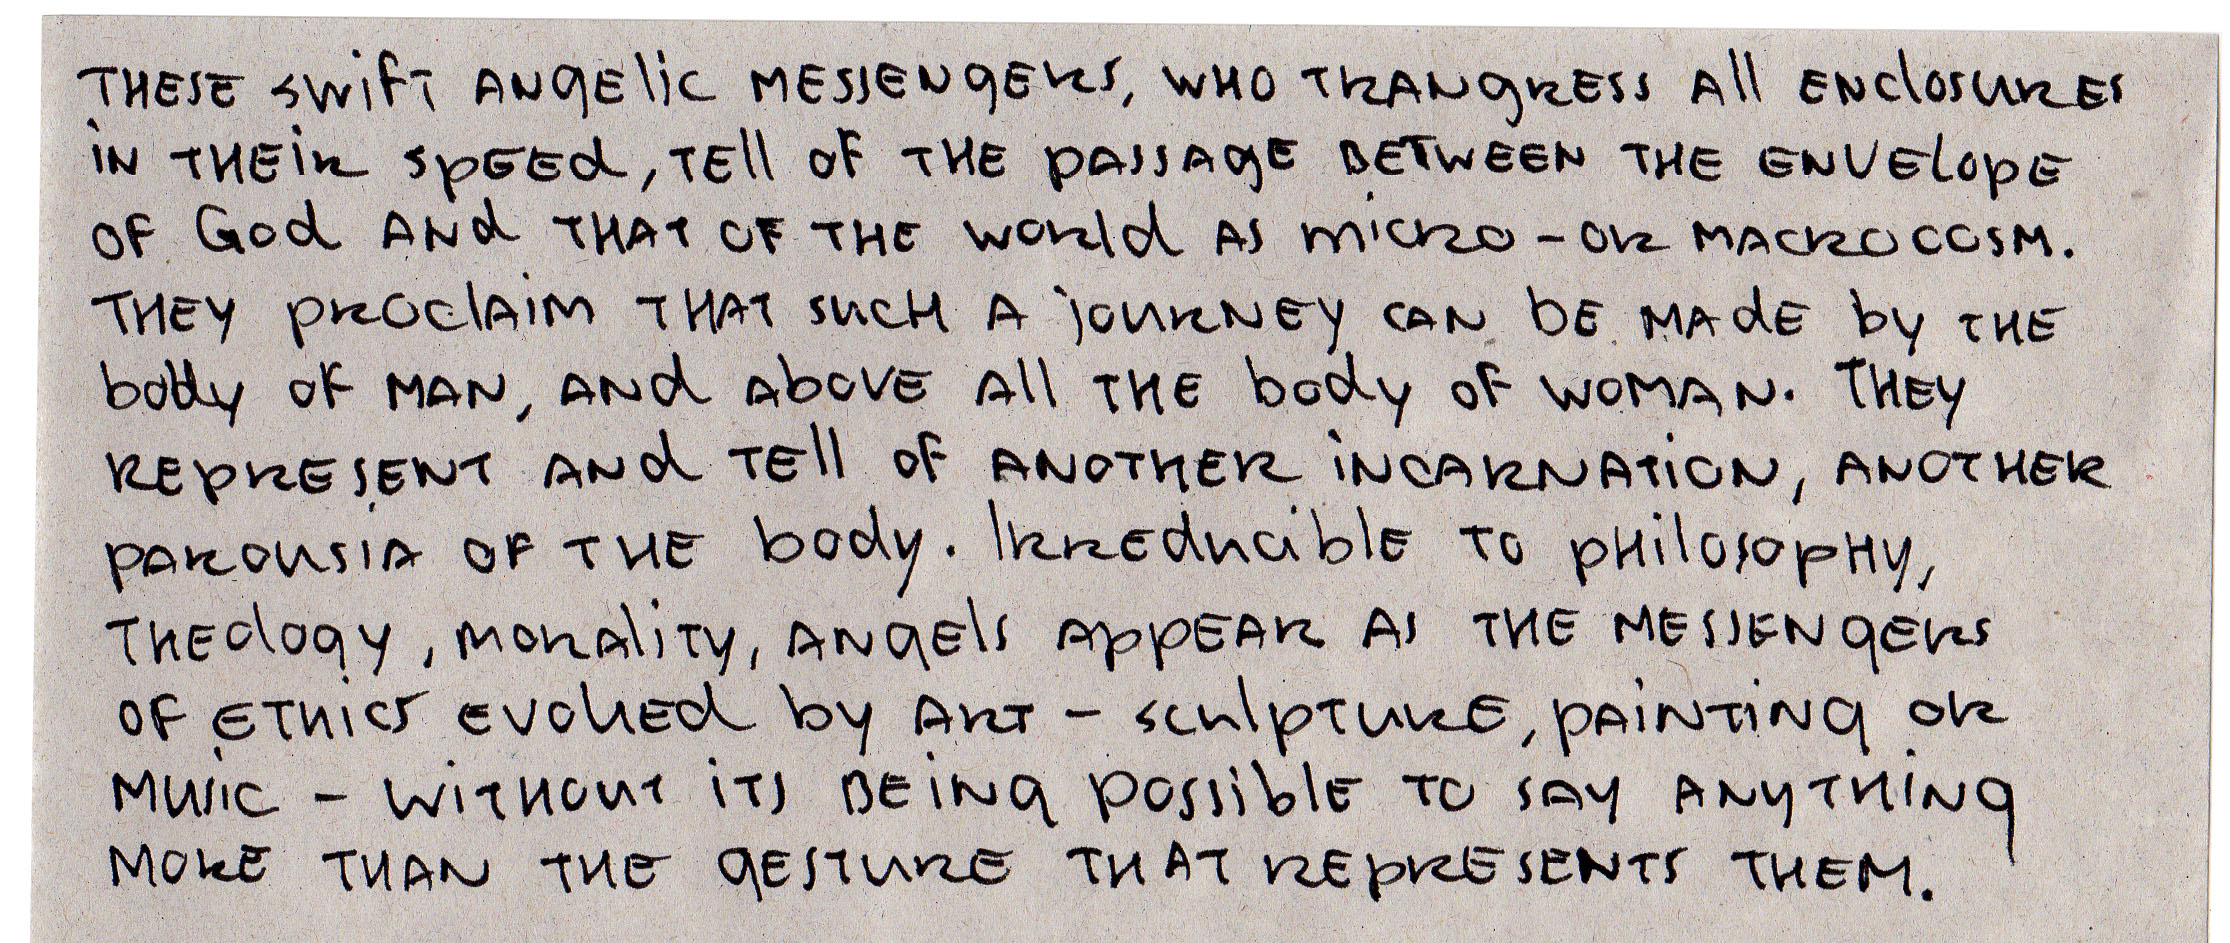 THESE SWIFT ANGELIC MESSENGERS, WHO TRANGRESS ALL ENCLOSURES
IN THEIR SPEED, TELL OF THE PASSAGE BETWEEN THE ENVELOPE
OF GOD AND THAT OF THE WORLD AS MICRO-OR MACROCOSM.
THEY PROCLAIM THAT SUCH A JOURNEY CAN BE MADE BY THE
BODY OF MAN, AND ABOVE ALL THE BODY OF WOMAN. THEY
REPRESENT AND TELL OF ANOTHER INCARNATION, ANOTHER
PAROUSIA OF THE BODY. IRREDUCIBLE TO PHILOSOPHY,
THEOLOGY, MORALITY, ANGELS APPEAR AS THE MESSENGERS
OF ETHICS EVOKED BY ART - SCULPTURE, PAINTING OR
MUSIC - WITHOUT ITS BEING POSSIBLE TO SAY ANYTHING
MORE THAN THE GESTURE THAT REPRESENTS THEM.